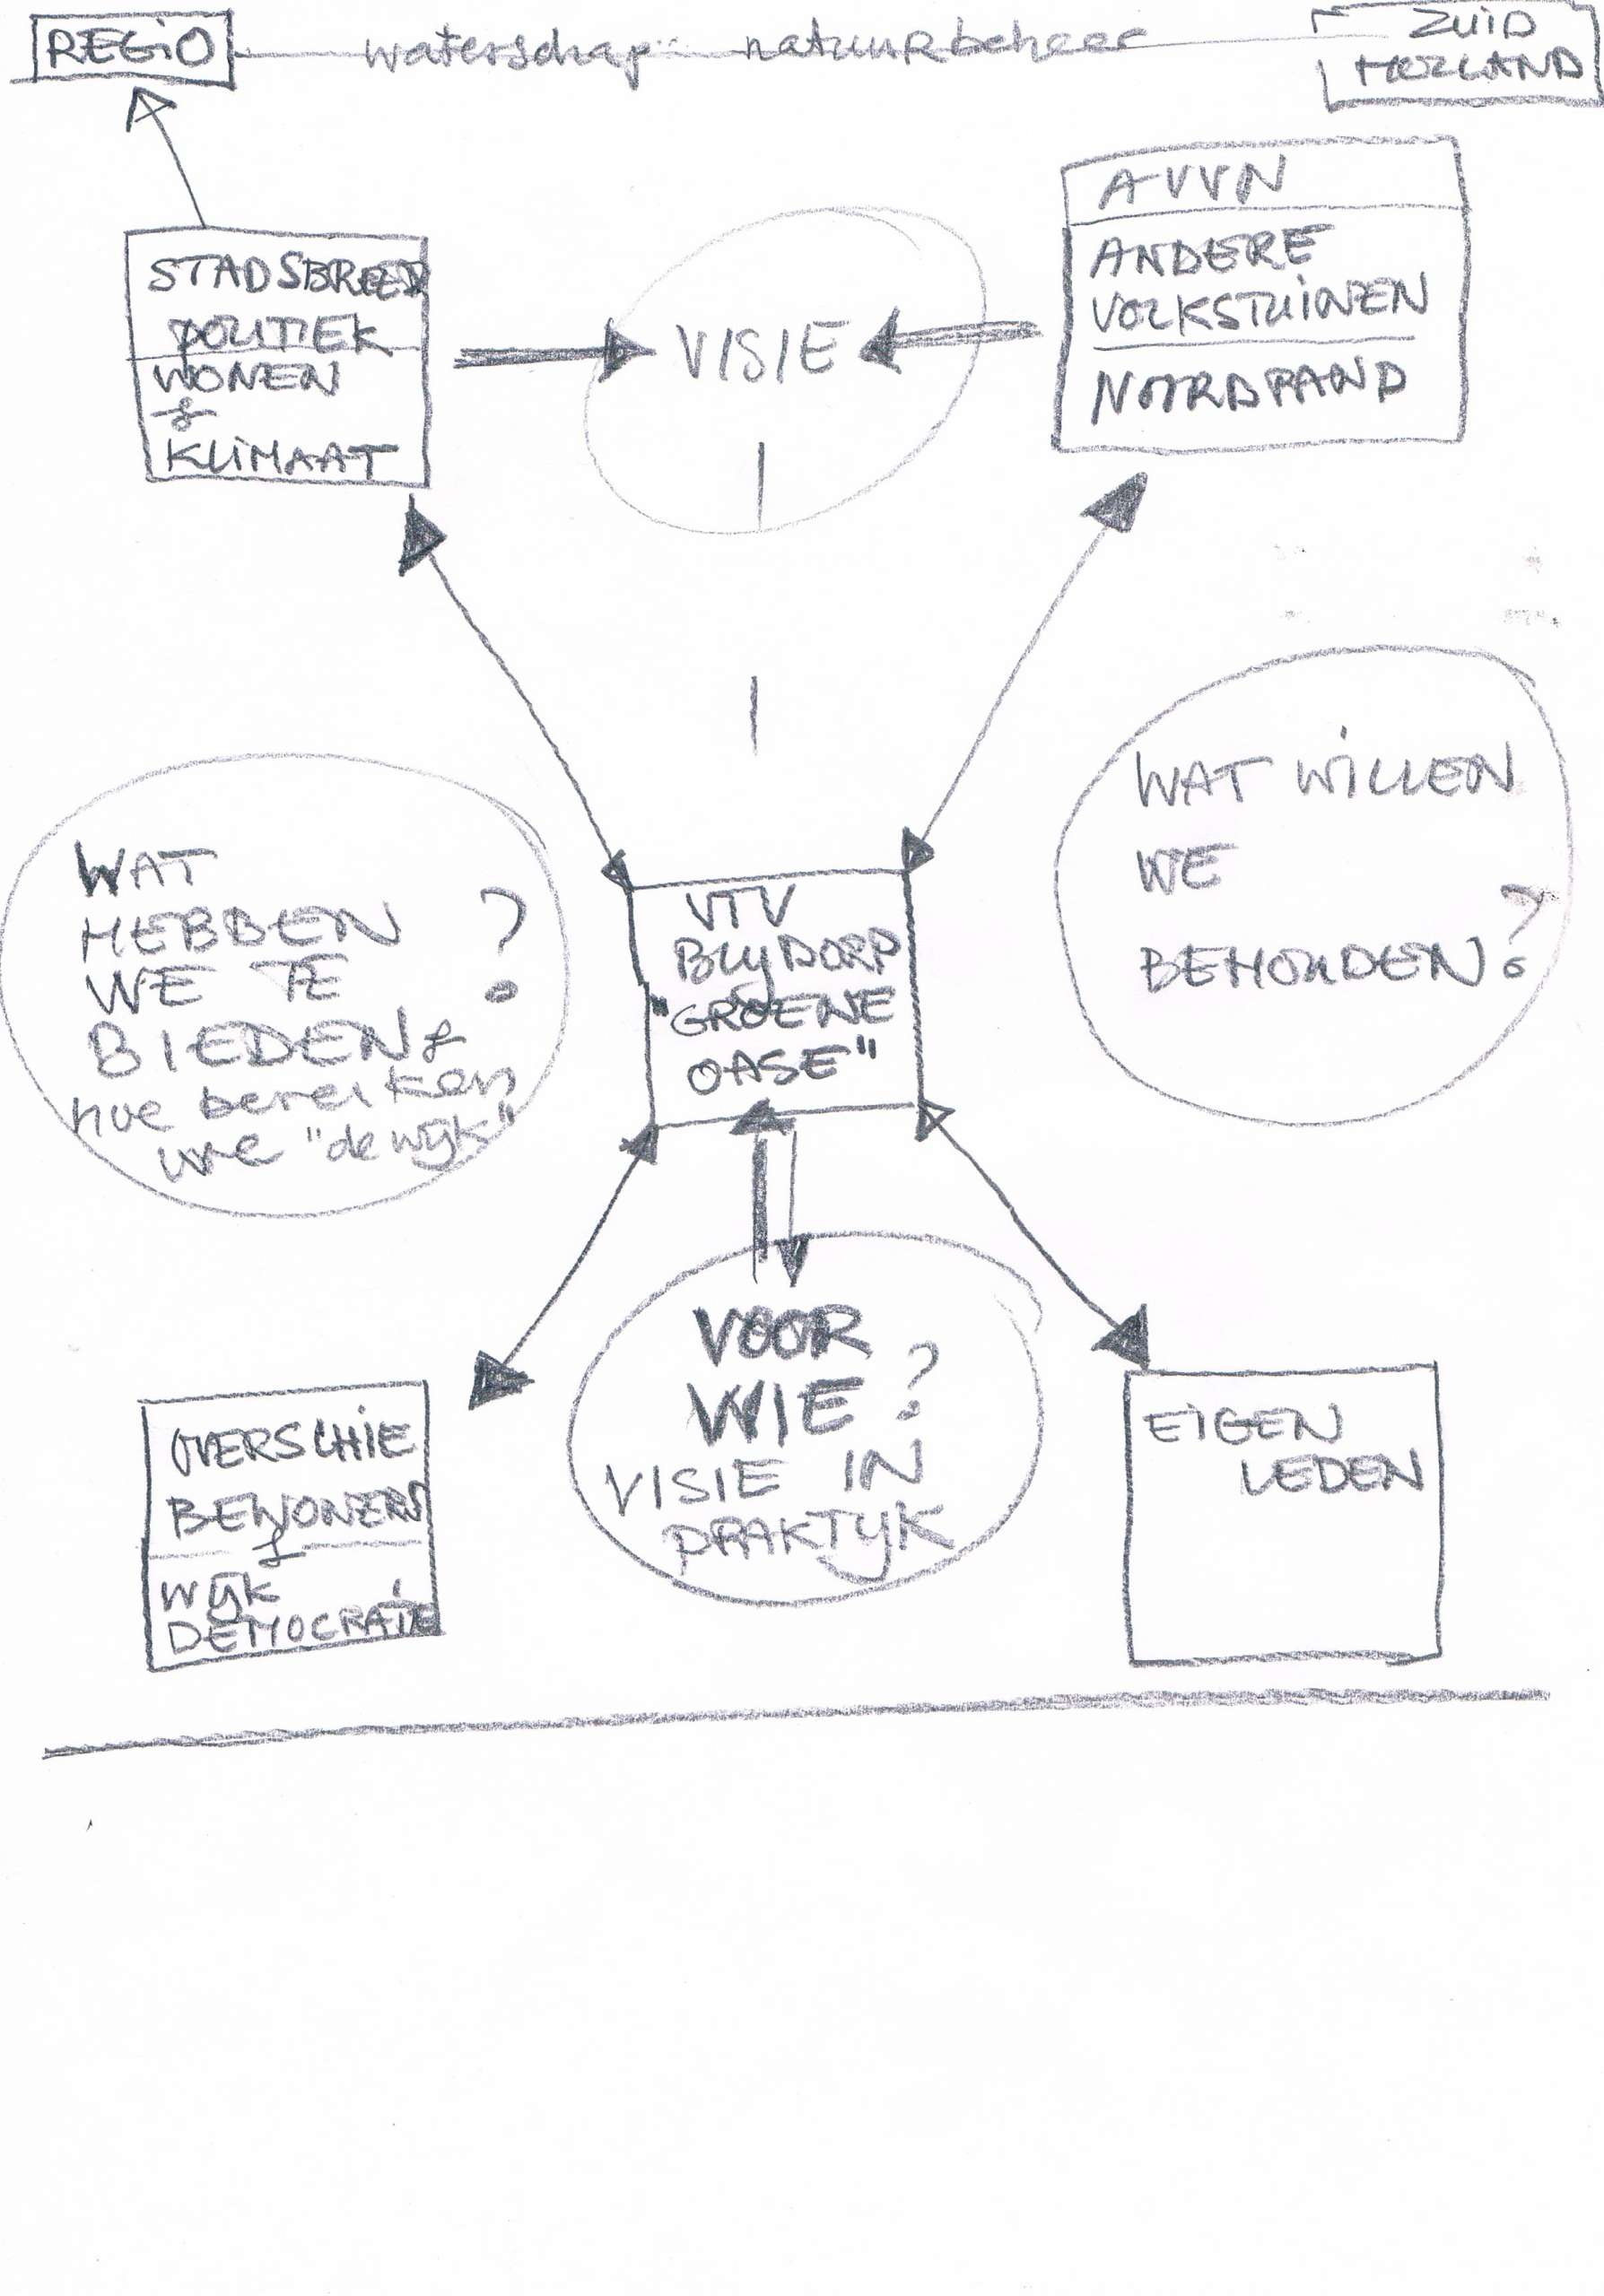 REGIO
waterschap natuurbeheer
ZUID
HOLLAND
STADSBREED
POLITIEK
WONEN
&
KLIMAAT
VISIE
AVVN
ANDERE
VOLKSTUINEN
NOORDRAND
WAT
HEBBEN ?
WE TE
BIEDEN &
hoe bereiken
we "de wijk"
WAT WILLEN
WE
BEHOUDEN?
VTV
BLIJDORP
"GROENE
OASE"
VOOR
WIE?
VISIE IN
PRAKTIJK
OVERSCHIE
BEWONERS
&
WIJK
DEMOCRATIE
EIGEN
LEDEN